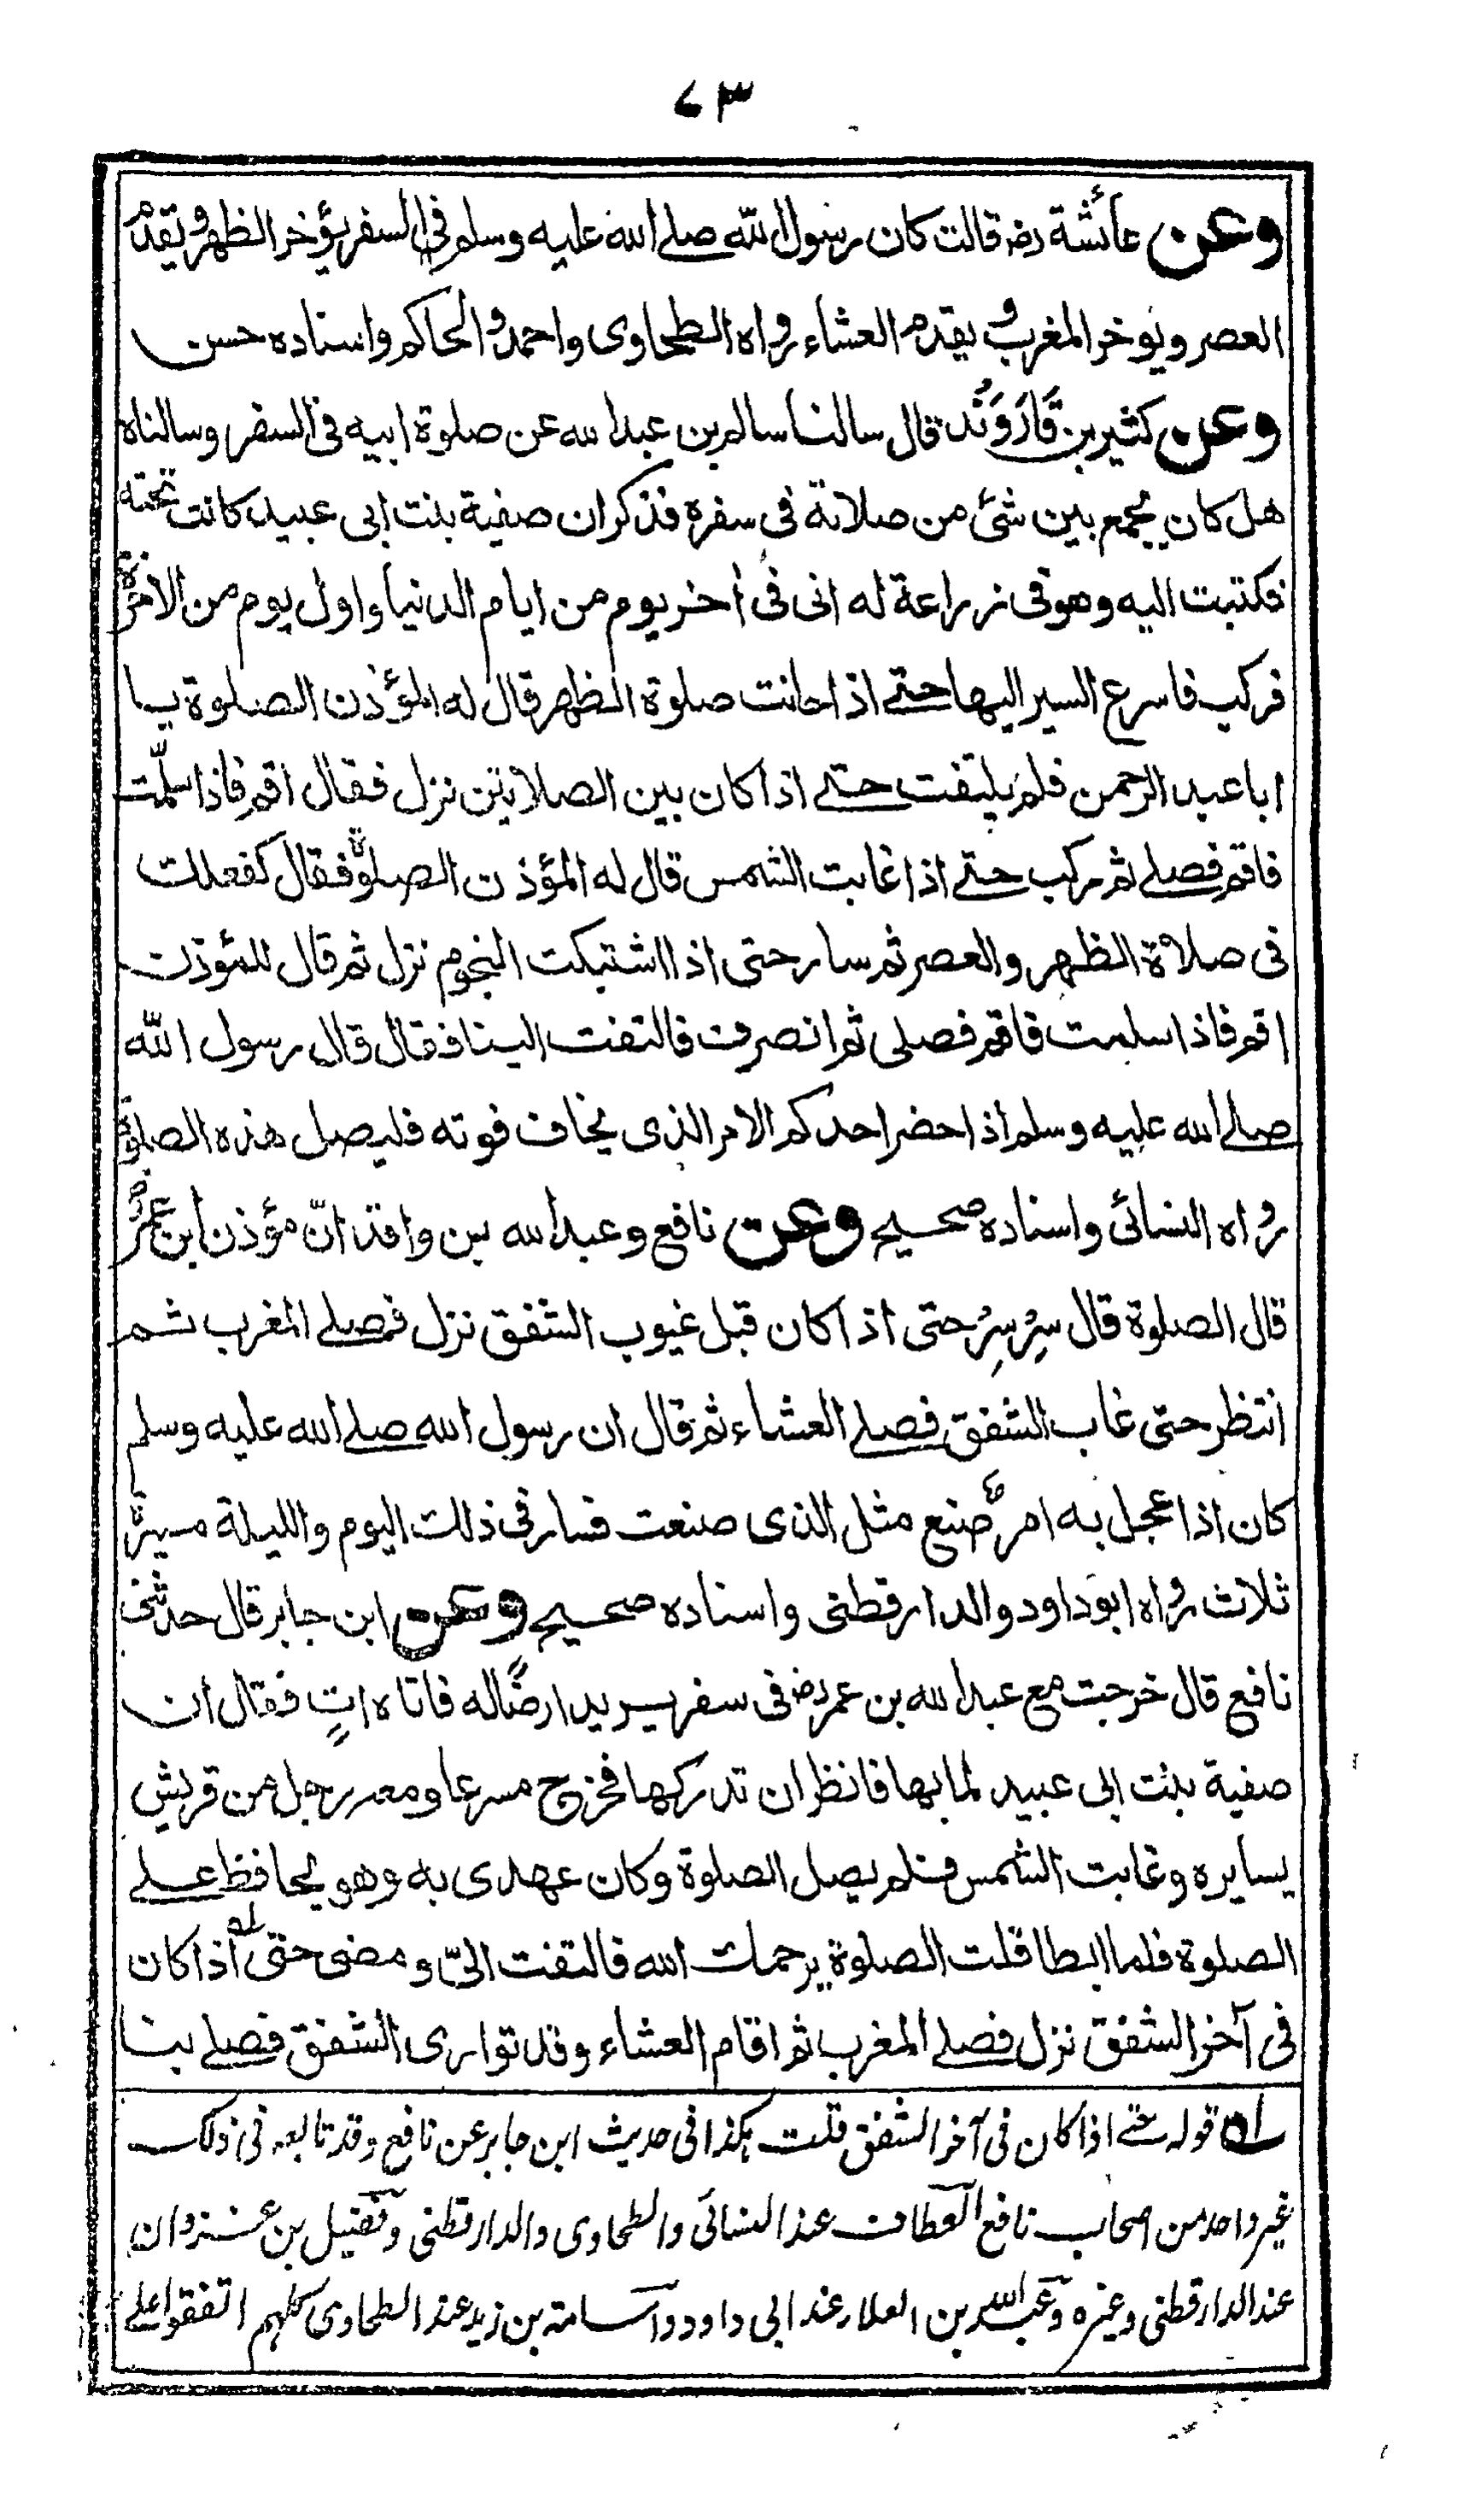 ۷۳
وعن عائشة رضـ قالت كان رسول الله صلے الله عليه وسلم فى السفر يؤخر الظهر ويقدم
العصر ويوخر المغرب ويقدم العشاء رواه الطحاوى واحمد والحاكم واسناده حسن
وعن كثير بن قَارَوَنْد قال سالنا سالم بن عبد الله عن صلوة ابيه فى السفر وسالناه
هل كان يجمع بين شئ من صلاتة فى سفره فذكر ان صفية بنت ابى عبيد كانت تحته
فكتبت اليه وهو فى زراعة له انى فى اخر يوم من ايام الدنيا واول يوم من الاخرة
فركب فاسرع السير اليها حتے اذا حانت صلوة الظهر قال له المؤذن الصلوة يا
ابا عبد الرحمن فلم يلتفت حتے اذا كان بين الصلاتين نزل فقال اقم فاذا سلّمت
فاقم فصلے ثم ركب حتے اذا غابت الشمس قال له المؤذن الصلوة فقال كفعلك
فى صلاة الظهر والعصر ثم سار حتى اذا اشتبكت النجوم نزل ثم قال للمؤذن
اقم فاذا سلمت فاقم فصلى ثم انصرف فالتفت الينا فقال قال رسول الله
صلے الله عليه وسلم اذا حضر احدكم الامر الذى يخاف فوته فليصل هذه الصلوة
رواه النسائى واسناده صحيح وعن نافع وعبد الله بن واقد انّ مؤذن ابن عمر رضـ
قال الصلوة قال سِرْ سِرْ حتى اذا كان قبل غيوب الشفق نزل فصلے المغرب ثم
انتظر حتى غاب الشفق فصلے العشاء ثم قال ان رسول الله صلے الله عليه وسلم
كان اذا عجل به امر صنع مثل الذى صنعت فسار فى ذلك اليوم والليلة مسيرة
ثلاث رواه ابو داود والدارقطنى واسناده صحيح وعن ابن جابر قال حدثنى
نافع قال خرجت مع عبد الله بن عمر رضـ فى سفر يريد ارضًا له فاتاه اتٍ فقال ان
صفية بنت ابى عبيد لما بها فانظر ان تدركها فخرج مسرعا ومعه رجل من قريش
يسايره وغابت الشمس فلم يصل الصلوة وكان عهدى به وهو يحافظ علے
الصلوة فلما ابطا قلت الصلوة يرحمك الله فالتفت الىّ ومضى حتى لـه اذا كان
فى آخر الشفق نزل فصلے المغرب ثم اقام العشاء وقد توارى الشفق فصلے بنا
لـه قوله حتے اذا كان فى آخر الشفق قلت هكذا فى حديث ابن جابر عن نافع وقد تابعه فى ذلك
غير واحد من اصحاب نافع العطاف عند النسائى والطحاوى والدارقطنى وفضيل بن غزوان
عند الدارقطنى وغيره وعبد الله بن العلاء عند ابى داود واسامة بن زيد عند الطحاوى كلهم اتفقوا على